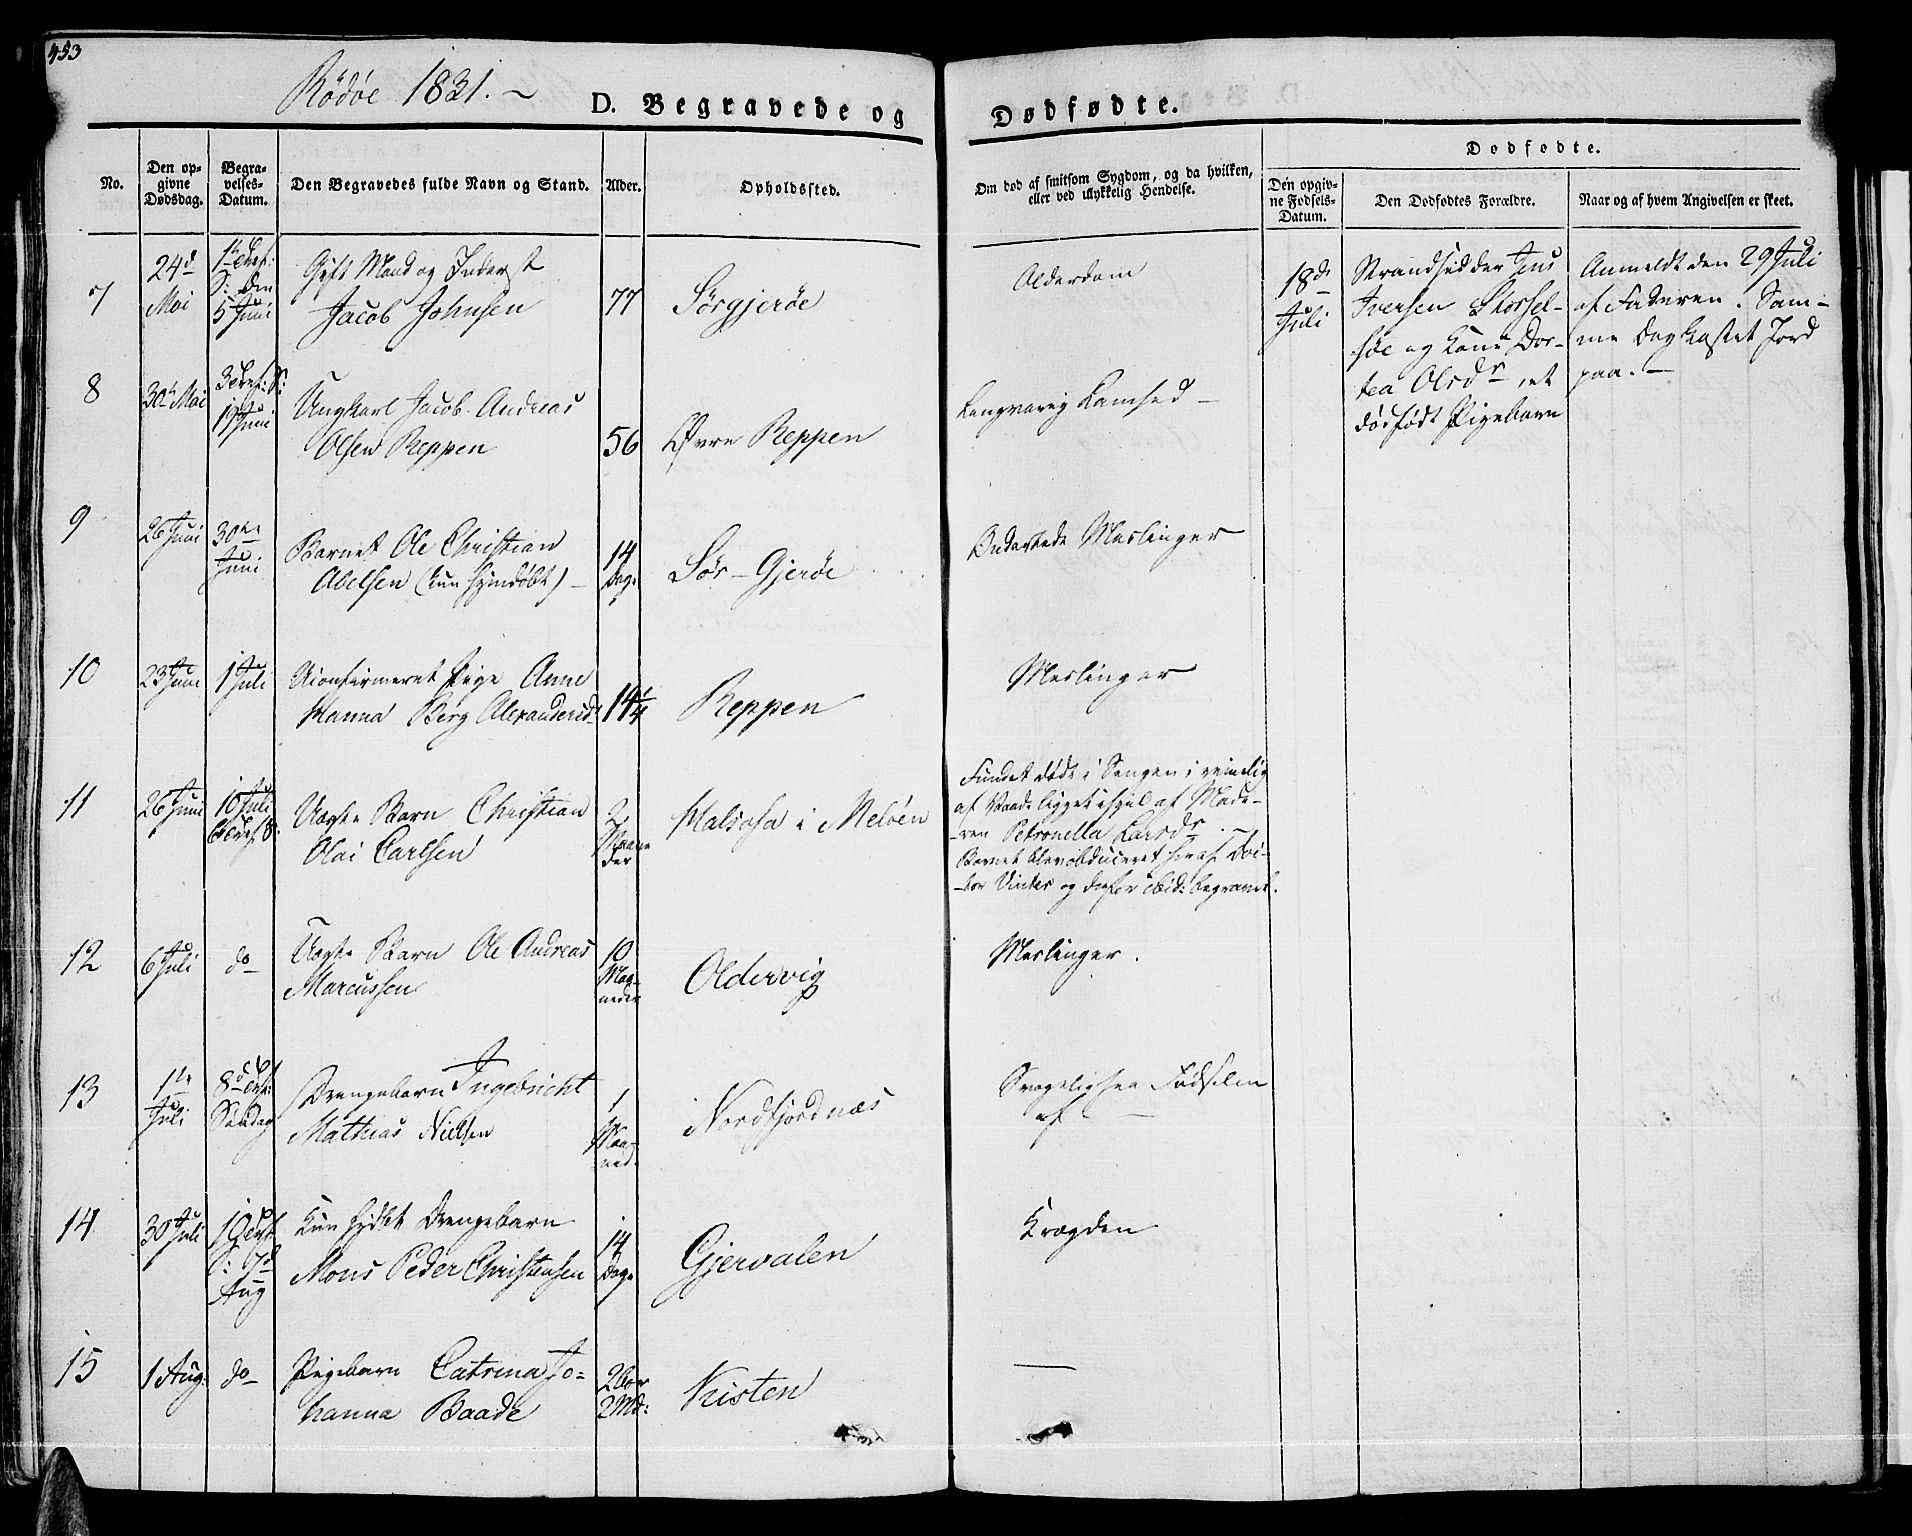 453
Rödöe 1831. ~
D. Begravede og
Dødfødte.
No.
Den op-
givne
Dødsdag.
Begra-
velses-
Datum.
Den Begravedes fulde Navn og Stand.
Alder.
Opholdssted.
Om død af smitsom Sygdom, og da hvilken,
eller ved ulykkelig Hendelse.
Dødfødte.
Den opgiv-
ne Fødsels-
Datum.
Den Dødfødtes Forældre.
Naar og af hvem Angivelsen er skeet.
7
24d
Mai
5 Juni
Gift Mand og Inderst
Jacob Johnsen
77
Sörgjeröe
Alderdom
18de
Juli
Strandsidder Jens
Iversen Storsel-
söe og Kone Dor-
tea Olsdr, et
dödfödt Pigebarn
Anmeldt den 29 Juli
af Faderen. Sam-
me Dag kastet Jord
paa. —
8
30te Mai
19 Juni
Ungkarl Jacob Andreas
Olsen Reppen
56
Øvre Reppen
Langvarig Lamhed —
9
26 Juni
30te
Juni
Barnet Ole Christian
Abelsen (kun hjemdöbt) —
14
Dage
Sör-Gjeröe
Ondartede Meslinger
10
23 Juni
1 Juli
Uconfirmeret Pige Anne
Hanna Berg Alexandersd.
14 1/4
Reppen
Meslinger
11
26 Juni
10 Juli
Uægte Barn Christian
Olai Carlsen
2
Maane
der
Halsosa i Melöen
Fundet död i Sengen rimelig
af Vaade ligget ihjel af Mode-
-ren Petronella Larsdr. —
Barnet blev obduceret her af Doc-
-tor Vinter og derfor ibid: begravet.
12
6 Juli
do
Uægte Barn Ole Andreas
Marcussen
10
Maa-
neder
Oldervig
Meslinger.
13
1te
Juli
8de
Söndag
Drengebarn Ingebricht
Mathias Nielsen
1
Maa-
ned.
Nordfjordnæs
Svagelig fra Födselen
af —
14
30 Juli
10
S: 7d
Aug
Kun hjdbt Drengebarn
Mons Peder Christensen
14
Dage
Gjervalen
Krægden
15
1 Aug.
do
Pigebarn Catrina Jo-
hanna Baade
2
2 Md:
Selsten
—